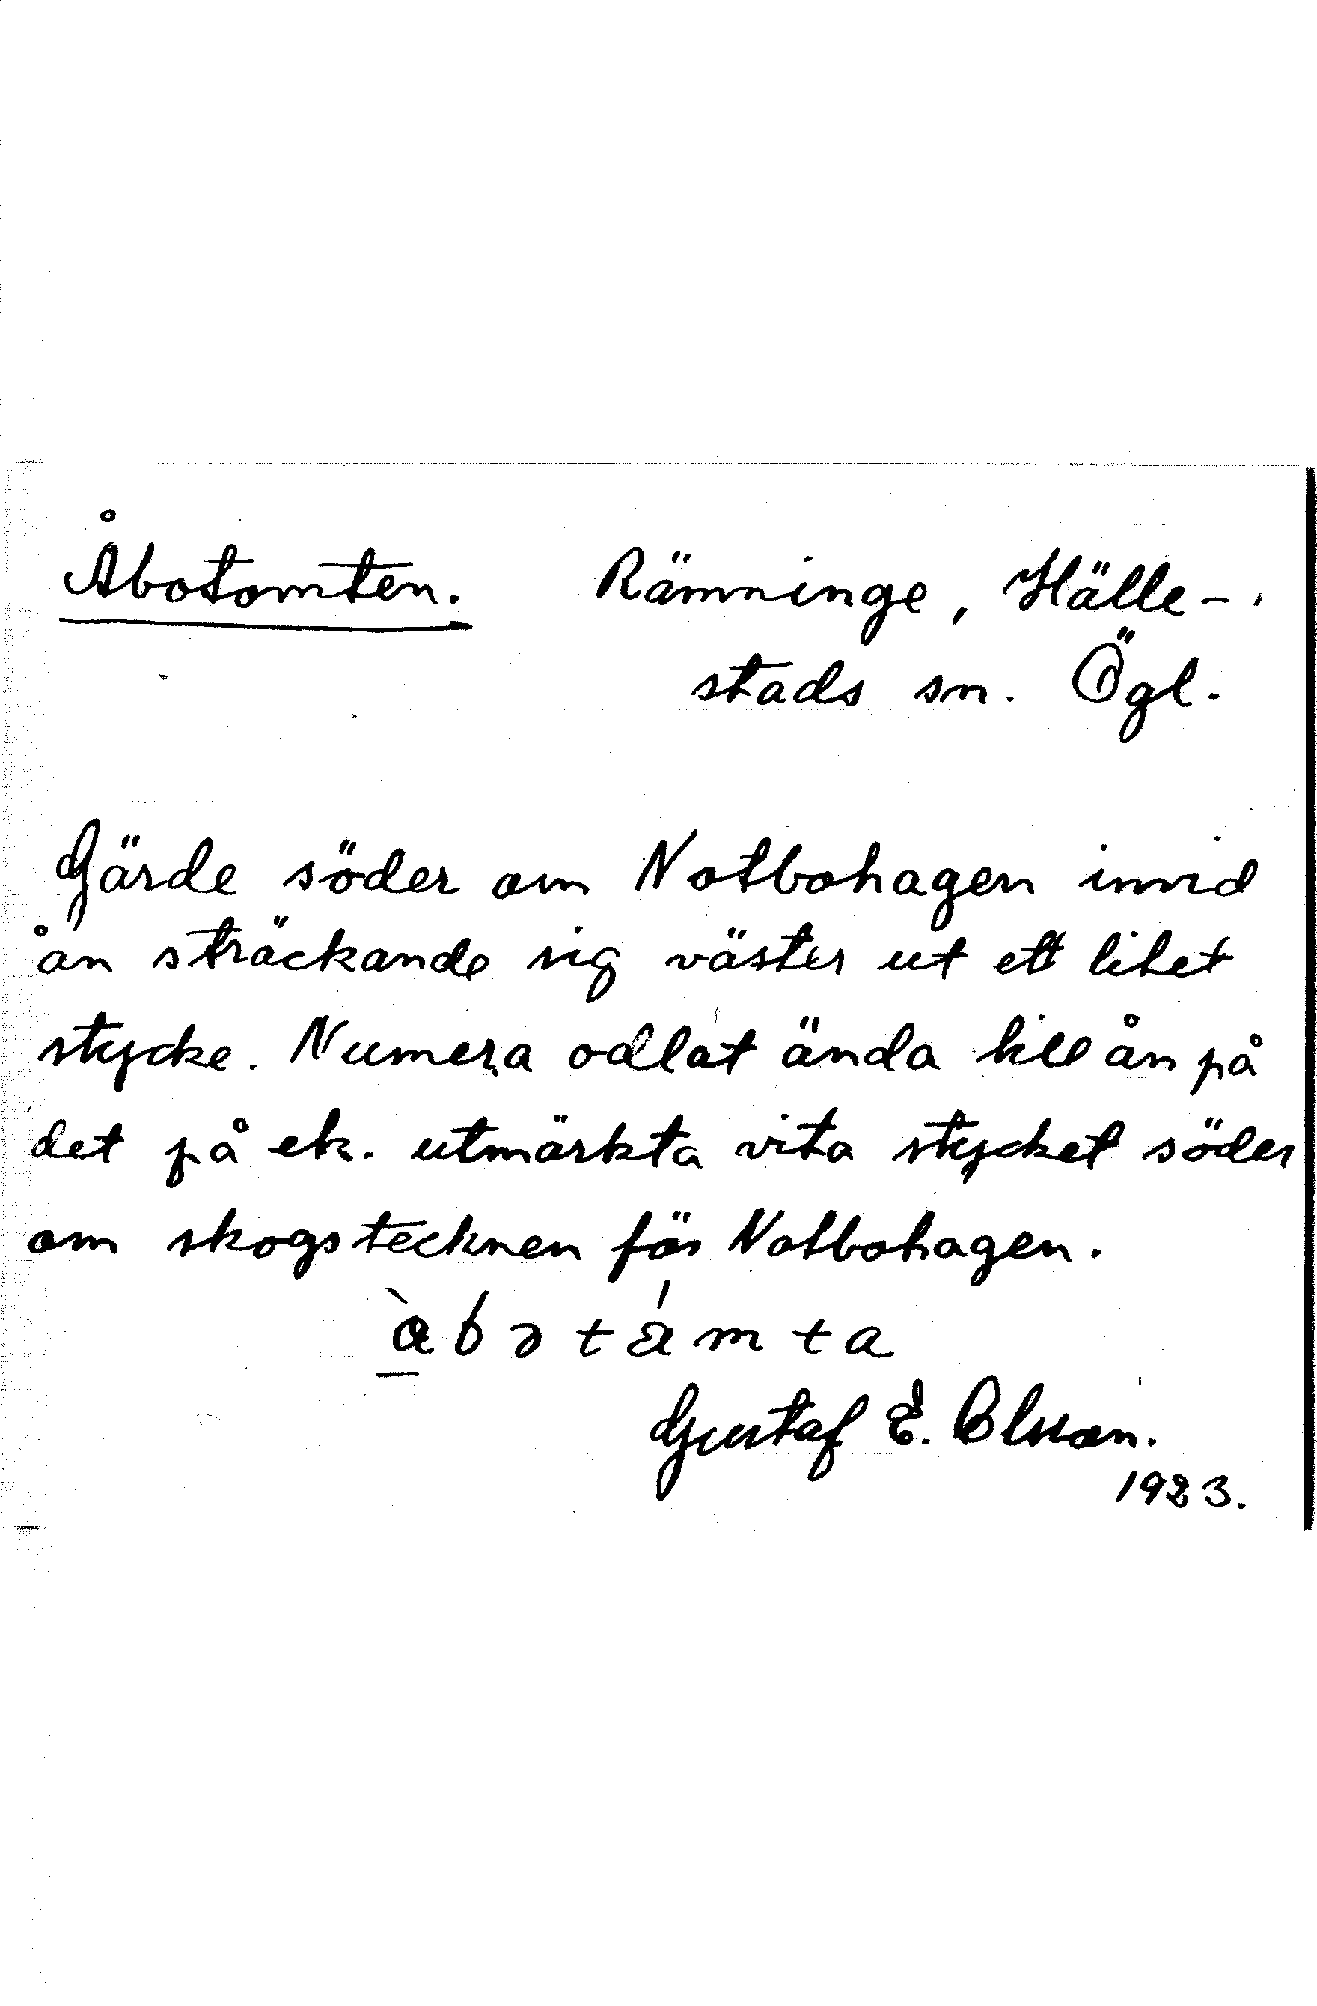 Åbotomten. Rämninge, Hälle-
stads sn. Ögl.
Gärde söder om Notbohagen invid
ån sträckande sig väster ut ett litet
stycke. Numera odlat ända till ån på
det på ek. utmärkta vita stycket söder
om skogstecknen för Notbohagen.
Gustaf E. Olsson.
1923.